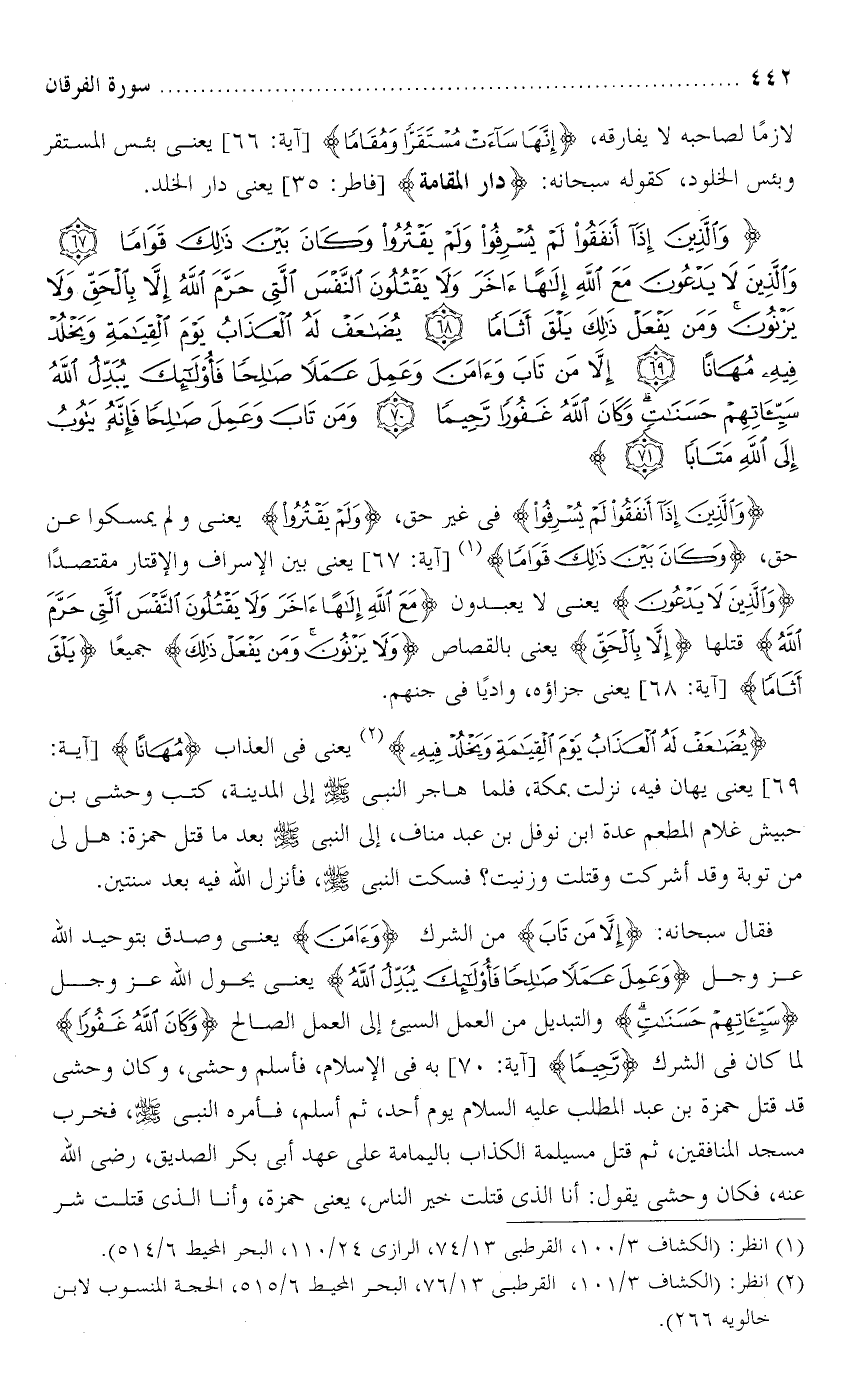 ٤٤٢ ........................................................................ سورة الفرقان
لازمًا لصاحبه لا يفارقه، ﴿إِنَّهَا سَآءَتْ مُسْتَقَرًّا وَمُقَامًا﴾ [آية: ٦٦] يعنى بئس المستقر
وبئس الخلود، كقوله سبحانه: ﴿دار المقامة﴾ [فاطر: ٣٥] يعنى دار الخلد.
﴿ وَٱلَّذِينَ إِذَآ أَنفَقُوا۟ لَمْ يُسْرِفُوا۟ وَلَمْ يَقْتُرُوا۟ وَكَانَ بَيْنَ ذَٰلِكَ قَوَامًا ٦٧
وَٱلَّذِينَ لَا يَدْعُونَ مَعَ ٱللَّهِ إِلَٰهًا ءَاخَرَ وَلَا يَقْتُلُونَ ٱلنَّفْسَ ٱلَّتِى حَرَّمَ ٱللَّهُ إِلَّا بِٱلْحَقِّ وَلَا
يَزْنُونَ ۚ وَمَن يَفْعَلْ ذَٰلِكَ يَلْقَ أَثَامًا ٦٨ يُضَٰعَفْ لَهُ ٱلْعَذَابُ يَوْمَ ٱلْقِيَٰمَةِ وَيَخْلُدْ
فِيهِۦ مُهَانًا ٦٩ إِلَّا مَن تَابَ وَءَامَنَ وَعَمِلَ عَمَلًا صَٰلِحًا فَأُو۟لَٰٓئِكَ يُبَدِّلُ ٱللَّهُ
سَيِّـَٔاتِهِمْ حَسَنَٰتٍ ۗ وَكَانَ ٱللَّهُ غَفُورًا رَّحِيمًا ٧٠ وَمَن تَابَ وَعَمِلَ صَٰلِحًا فَإِنَّهُۥ يَتُوبُ
إِلَى ٱللَّهِ مَتَابًا ٧١ ﴾
﴿وَٱلَّذِينَ إِذَآ أَنفَقُوا۟ لَمْ يُسْرِفُوا۟﴾ فى غير حق، ﴿وَلَمْ يَقْتُرُوا۟﴾ يعنى ولم يمسكوا عن
حق، ﴿وَكَانَ بَيْنَ ذَٰلِكَ قَوَامًا﴾(١) [آية: ٦٧] يعنى بين الإسراف والإقتار مقتصدًا
﴿وَٱلَّذِينَ لَا يَدْعُونَ﴾ يعنى لا يعبدون ﴿مَعَ ٱللَّهِ إِلَٰهًا ءَاخَرَ وَلَا يَقْتُلُونَ ٱلنَّفْسَ ٱلَّتِى حَرَّمَ
ٱللَّهُ﴾ قتلها ﴿إِلَّا بِٱلْحَقِّ﴾ يعنى بالقصاص ﴿وَلَا يَزْنُونَ ۚ وَمَن يَفْعَلْ ذَٰلِكَ﴾ جميعًا ﴿يَلْقَ
أَثَامًا﴾ [آية: ٦٨] يعنى جزاؤه، واديًا فى جنهم.
﴿يُضَٰعَفْ لَهُ ٱلْعَذَابُ يَوْمَ ٱلْقِيَٰمَةِ وَيَخْلُدْ فِيهِۦ﴾(٢) يعنى فى العذاب ﴿مُهَانًا﴾ [آية:
٦٩] يعنى يهان فيه، نزلت بمكة، فلما هاجر النبى ﷺ إلى المدينة، كتب وحشى بن
حبيش غلام المطعم عدة ابن نوفل بن عبد مناف، إلى النبى ﷺ بعد ما قتل حمزة: هل لى
من توبة وقد أشركت وقتلت وزنيت؟ فسكت النبى ﷺ، فأنزل الله فيه بعد سنتين.
فقال سبحانه: ﴿إِلَّا مَن تَابَ﴾ من الشرك ﴿وَءَامَنَ﴾ يعنى وصدق بتوحيد الله
عز وجل ﴿وَعَمِلَ عَمَلًا صَٰلِحًا فَأُو۟لَٰٓئِكَ يُبَدِّلُ ٱللَّهُ﴾ يعنى يحول الله عز وجل
﴿سَيِّـَٔاتِهِمْ حَسَنَٰتٍ ۗ﴾ والتبديل من العمل السيئ إلى العمل الصالح ﴿وَكَانَ ٱللَّهُ غَفُورًا﴾
لما كان فى الشرك ﴿رَّحِيمًا﴾ [آية: ٧٠] به فى الإسلام، فأسلم وحشى، وكان وحشى
قد قتل حمزة بن عبد المطلب عليه السلام يوم أحد، ثم أسلم، فأمره النبى ﷺ، فخرب
مسجد المنافقين، ثم قتل مسيلمة الكذاب باليمامة على عهد أبى بكر الصديق، رضى الله
عنه، فكان وحشى يقول: أنا الذى قتلت خير الناس، يعنى حمزة، وأنا الذى قتلت شر
(١) انظر: (الكشاف ١٠٠/٣، القرطبى ٧٤/١٣، الرازى ١١٠/٢٤، البحر المحيط ٥١٤/٦).
(٢) انظر: (الكشاف ١٠١/٣، القرطبى ٧٦/١٣، البحر المحيط ٥١٥/٦، الحجة المنسوب لابن
خالويه ٢٦٦).